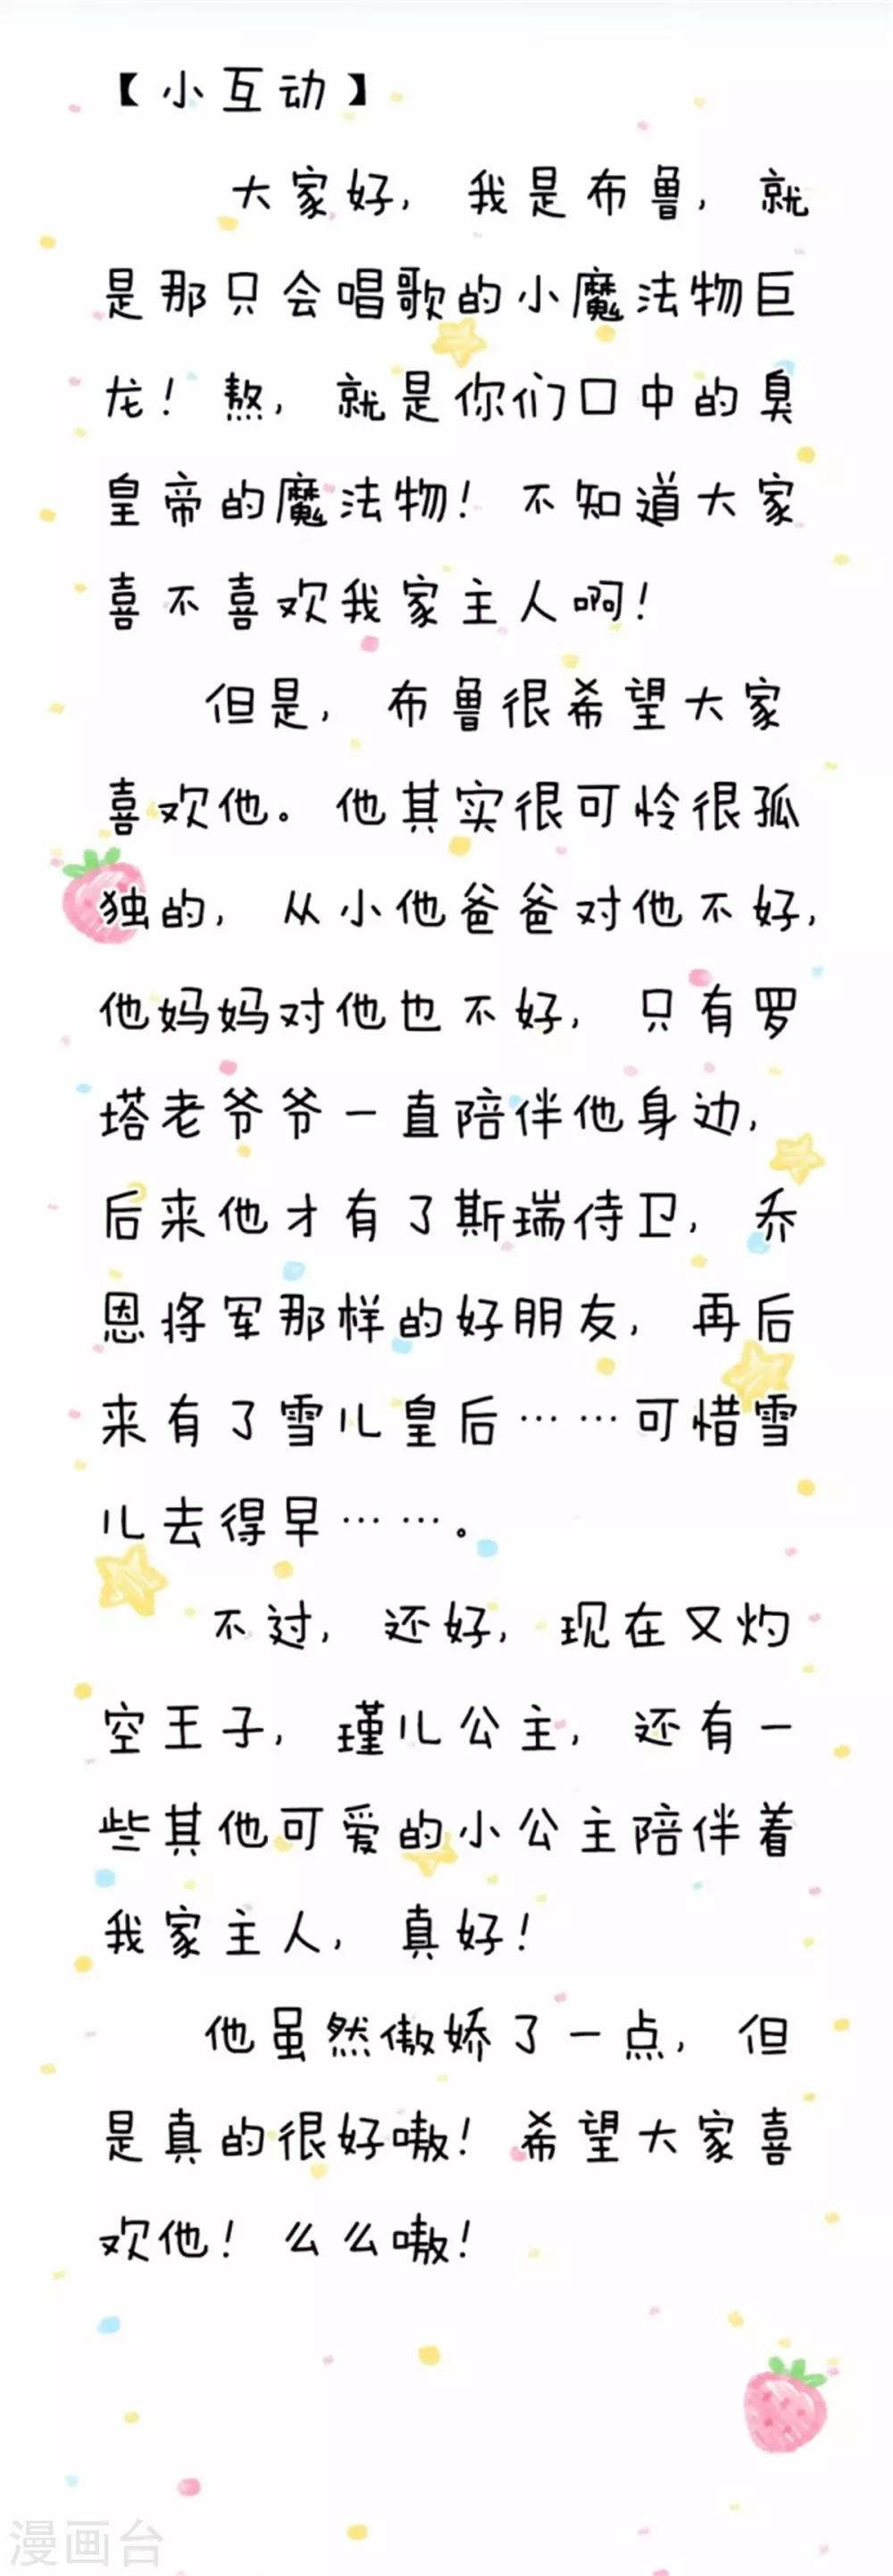 【小互动】
大家好，我是布鲁，就
是那只会唱歌的小魔法物巨
龙！熬，就是你们口中的臭
皇帝的魔法物！不知道大家
喜不喜欢我家主人啊！
但是，布鲁很希望大家
喜欢他。他其实很可怜很孤
独的，从小他爸爸对他不好，
他妈妈对他也不好，只有罗
塔老爷爷一直陪伴他身边，
后来他才有了斯瑞侍卫，乔
恩将军那样的好朋友，再后
来有了雪儿皇后……可惜雪
儿去得早……。
不过，还好，现在又灼
空王子，瑾儿公主，还有一
些其他可爱的小公主陪伴着
我家主人，真好！
他虽然傲娇了一点，但
是真的很好嗷！希望大家喜
欢他！么么嗷！
漫画台